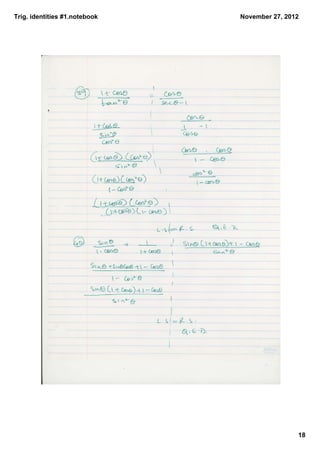 Trig. identities #1.notebook
November 27, 2012
39) (1 + Cosθ)/(tan²θ) = Cosθ/(secθ - 1)
Cosθ
(1 + Cosθ)/(Sin²θ/Cos²θ)
1/Cosθ - 1
(1 + Cosθ)(Cos²θ)/Sin²θ
Cosθ . Cosθ/(1 - Cosθ)
(1 + Cosθ)(Cos²θ)/(1 - Cos²θ)
cos²θ/(1 - cosθ)
(1 + Cosθ)(Cos²θ)/((1 + Cosθ)(1 - Cosθ))
L.S = R.S Q.E.D
40) Sinθ/(1 - Cosθ) + 1/(1 + Cosθ) Sinθ(1 + Cosθ) + 1 - Cosθ/Sin²θ
Sinθ + SinθCosθ + 1 - Cosθ/(1 - Cos²θ)
Sinθ(1 + Cosθ) + 1 - Cosθ/Sin²θ
L.S = R.S.
Q.E.D.
18